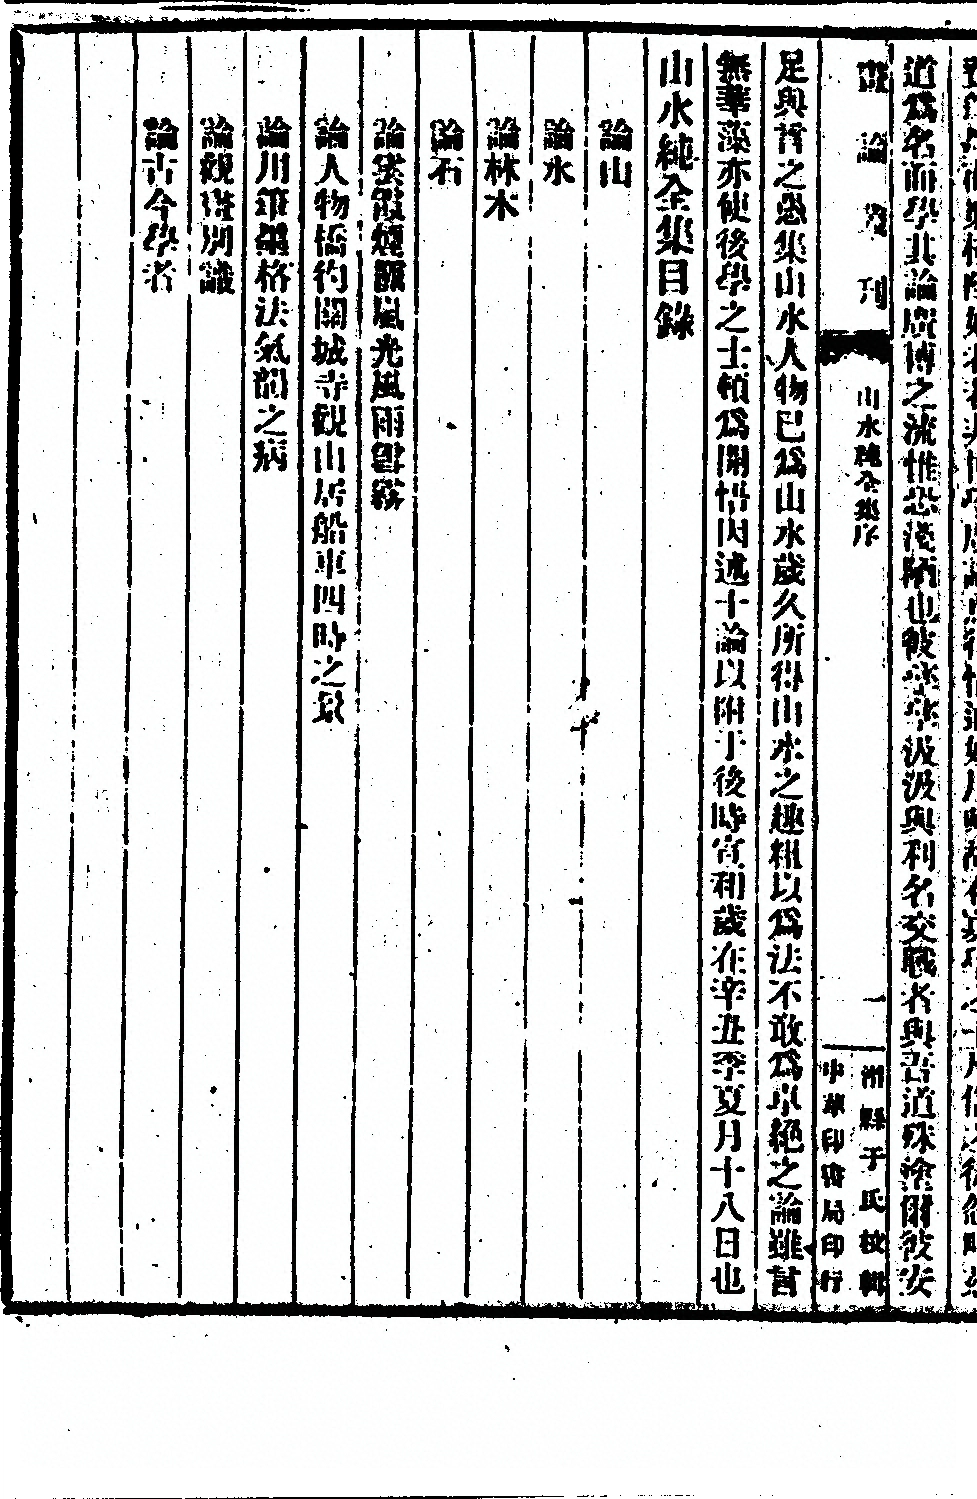 道爲名而學其論廣博之流惟恐淺陋也彼孳孳汲汲與利名交戰者與吾道殊塗爾彼安
畫論叢刊
山水純全集序
一
濰縣于氏校輯
中華印書局印行
足與言之愚集山水人物已爲山水歲久所得山水之趣粗以爲法不敢爲卓絶之論雖言
無華藻亦使後學之士頓爲開悟因述十論以附于後時宣和歲在辛丑季夏月十八日也
山水純全集目錄
論山
論水
論林木
論石
論雲霞煙靄嵐光風雨雪霧
論人物橋彴關城寺觀山居船車四時之景
論用筆墨格法氣韻之病
論觀畫別識
論古今學者